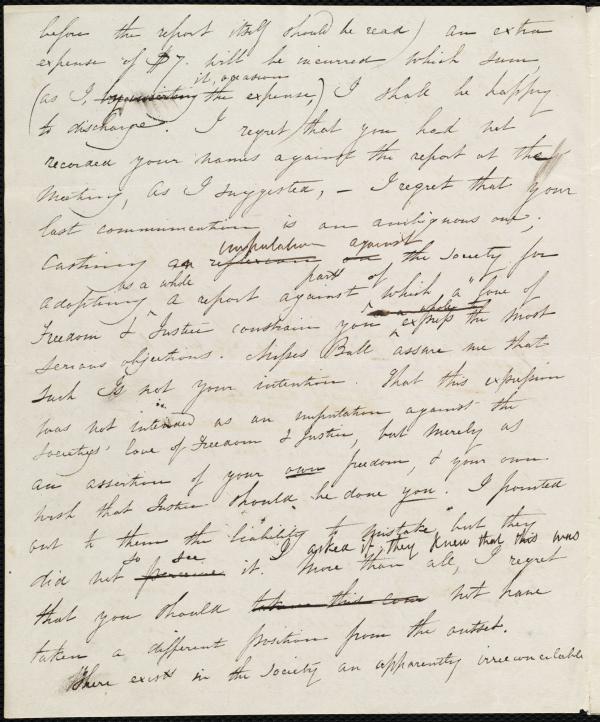 before the report itself should be read) an extra
expense of $7. will be incurred which sum,
it, occasions
(as I, the expense,) I shall be happy
to discharge. I regret that you had not
recorded your names against the report at the
meeting, as I suggested, – I regret that your
last communication is an ambiguous one,
imputation against
casting an reflexion on the Society for
as a whole parts of
adopting a report against which a "love of
Freedom & Justice constrain you express the most
serious objections. Misses Ball assure me that
such is not your intention. That this expression
was not intended as an imputation against the
Societies' love of Freedom & Justice, but merely as
an assertion of your own freedom, & your own
wish that Justice should be done you. I pointed
out to them the "liability to mistake" but they
so see I asked if they knew that this was
did not perceive it. More than all, I regret
that you should not have
taken a different position from the outset.
There exists in the Society an apparently irreconcilable